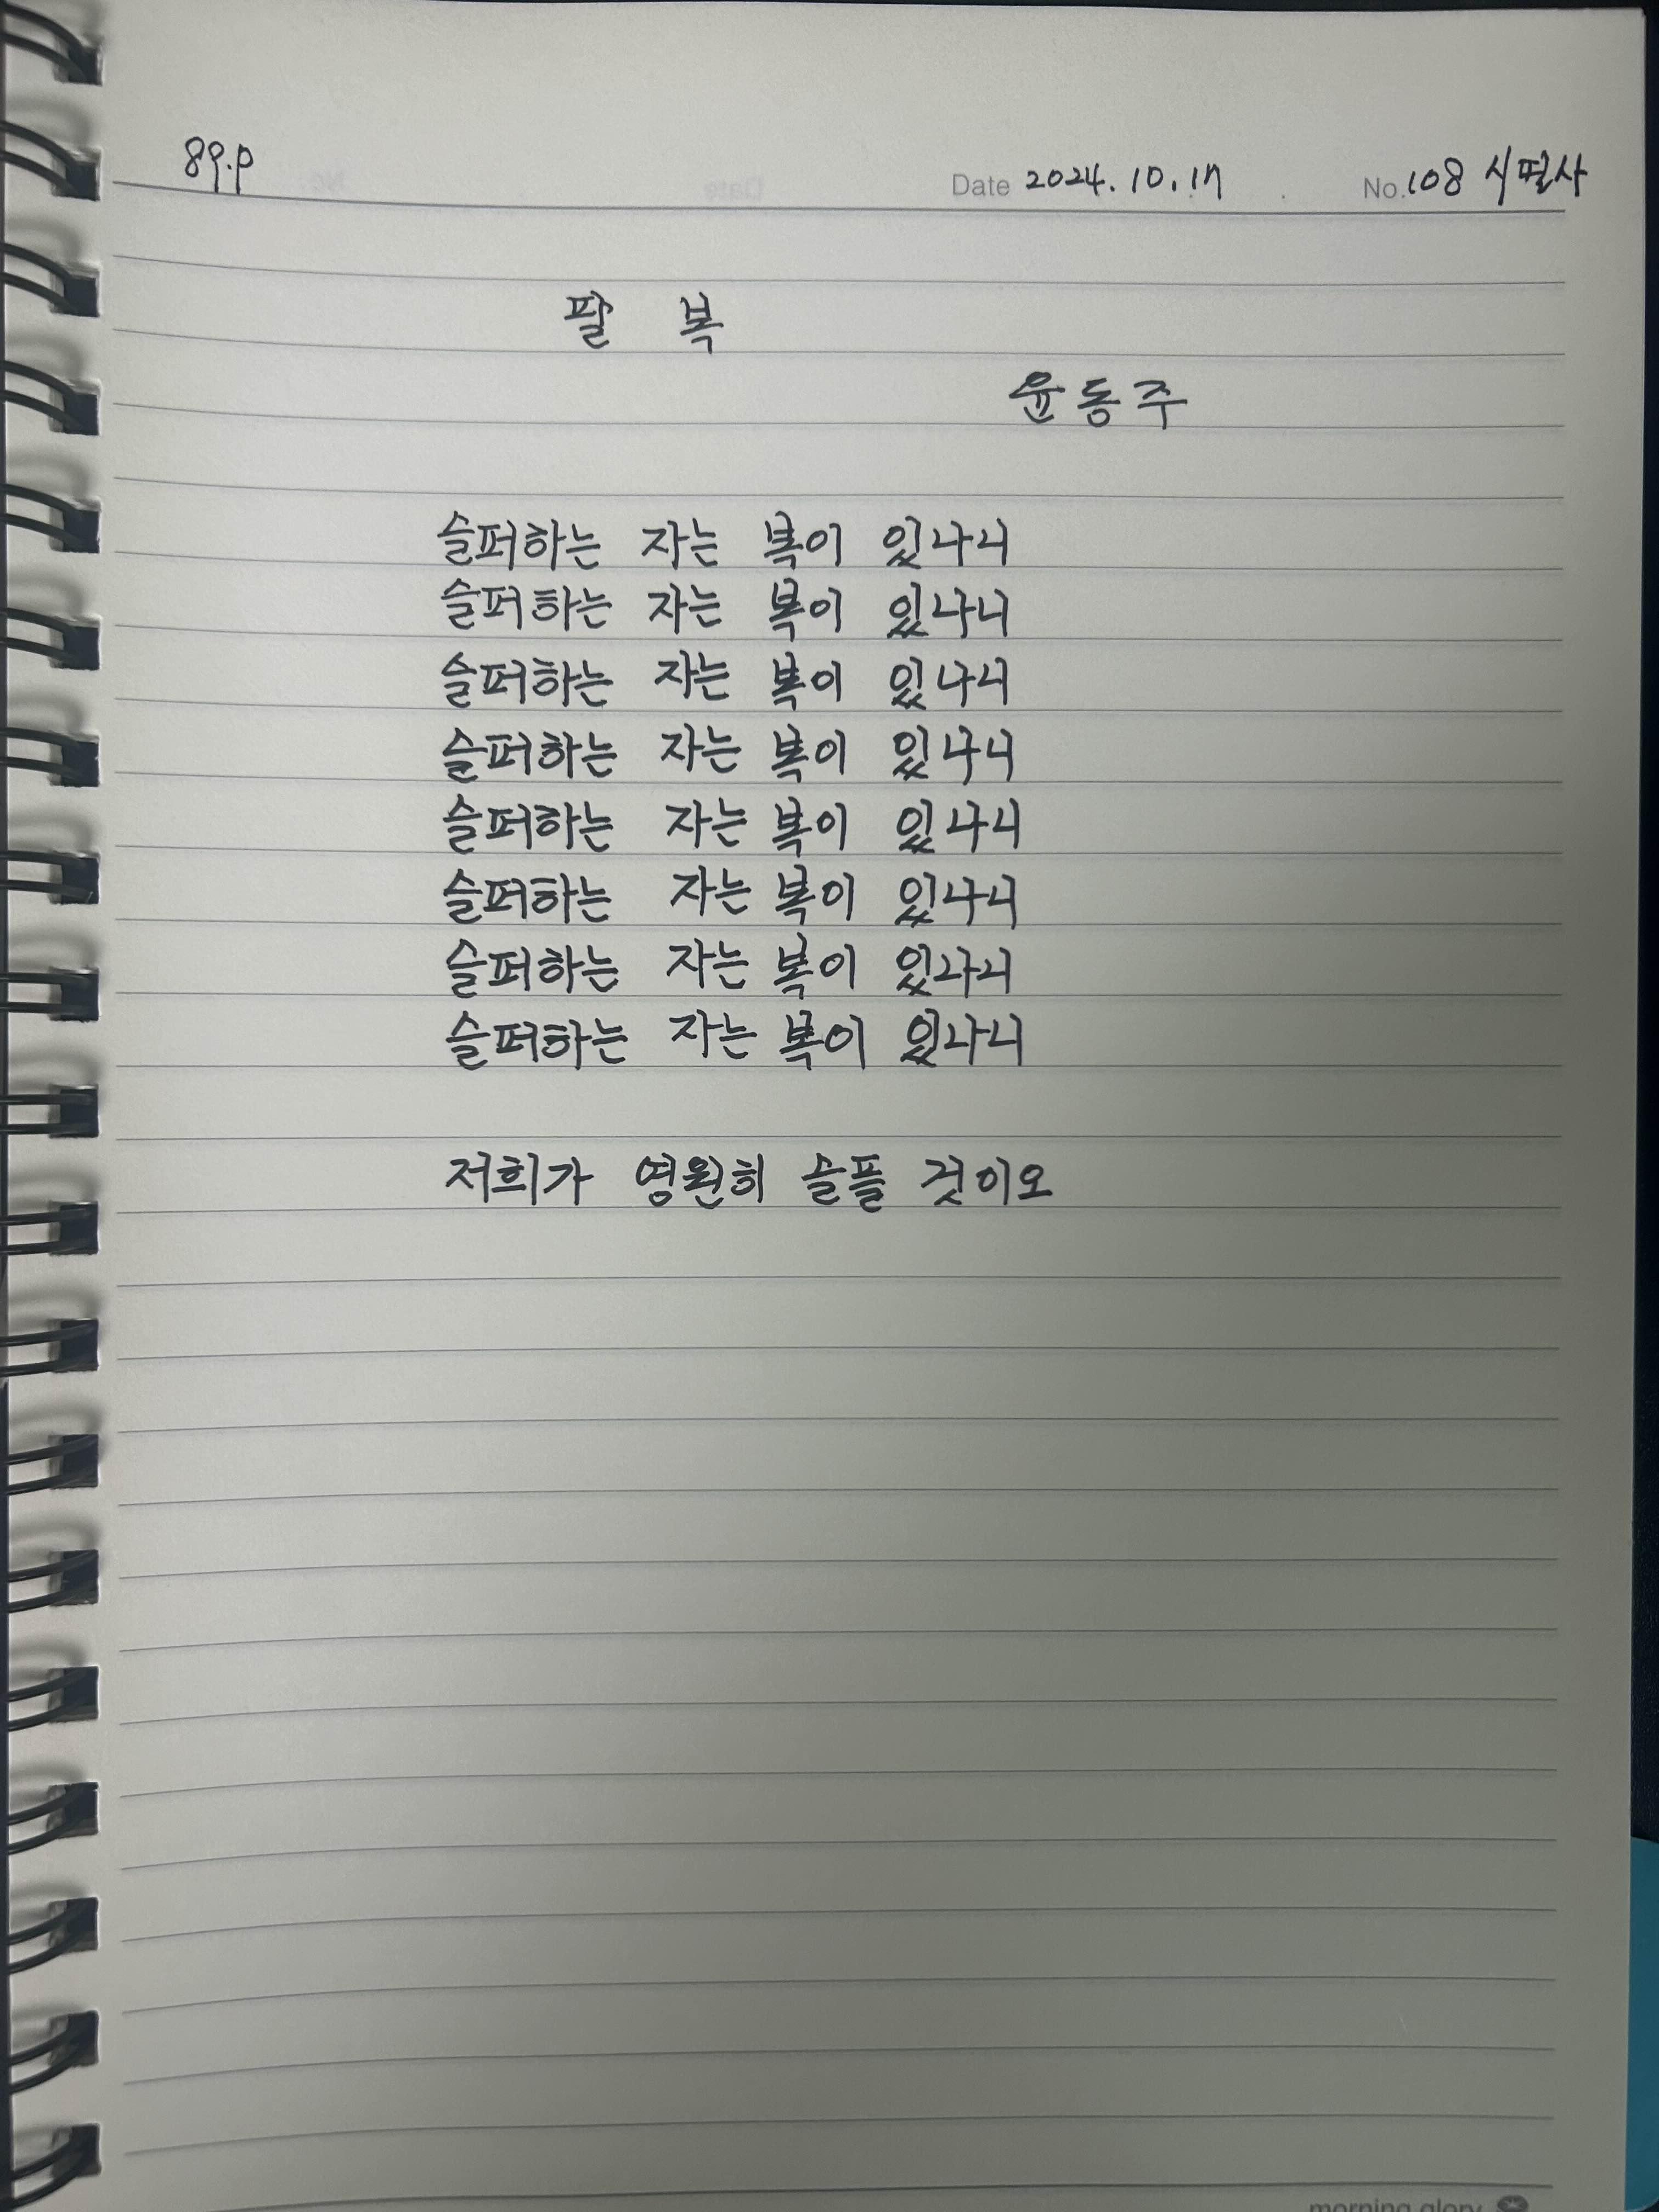 89.p Date 2024.10.17 No.108 시필사
팔 복
윤동주
슬퍼하는 자는 복이 있나니
슬퍼하는 자는 복이 있나니
슬퍼하는 자는 복이 있나니
슬퍼하는 자는 복이 있나니
슬퍼하는 자는 복이 있나니
슬퍼하는 자는 복이 있나니
슬퍼하는 자는 복이 있나니
슬퍼하는 자는 복이 있나니
저희가 영원히 슬플 것이오
morning glory